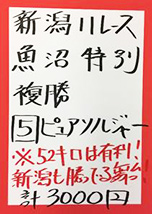 新潟11レース
魚沼特別
複勝
5ピュアソルジャー
※52キロは有利!
新潟も勝てる舞台
計3000円